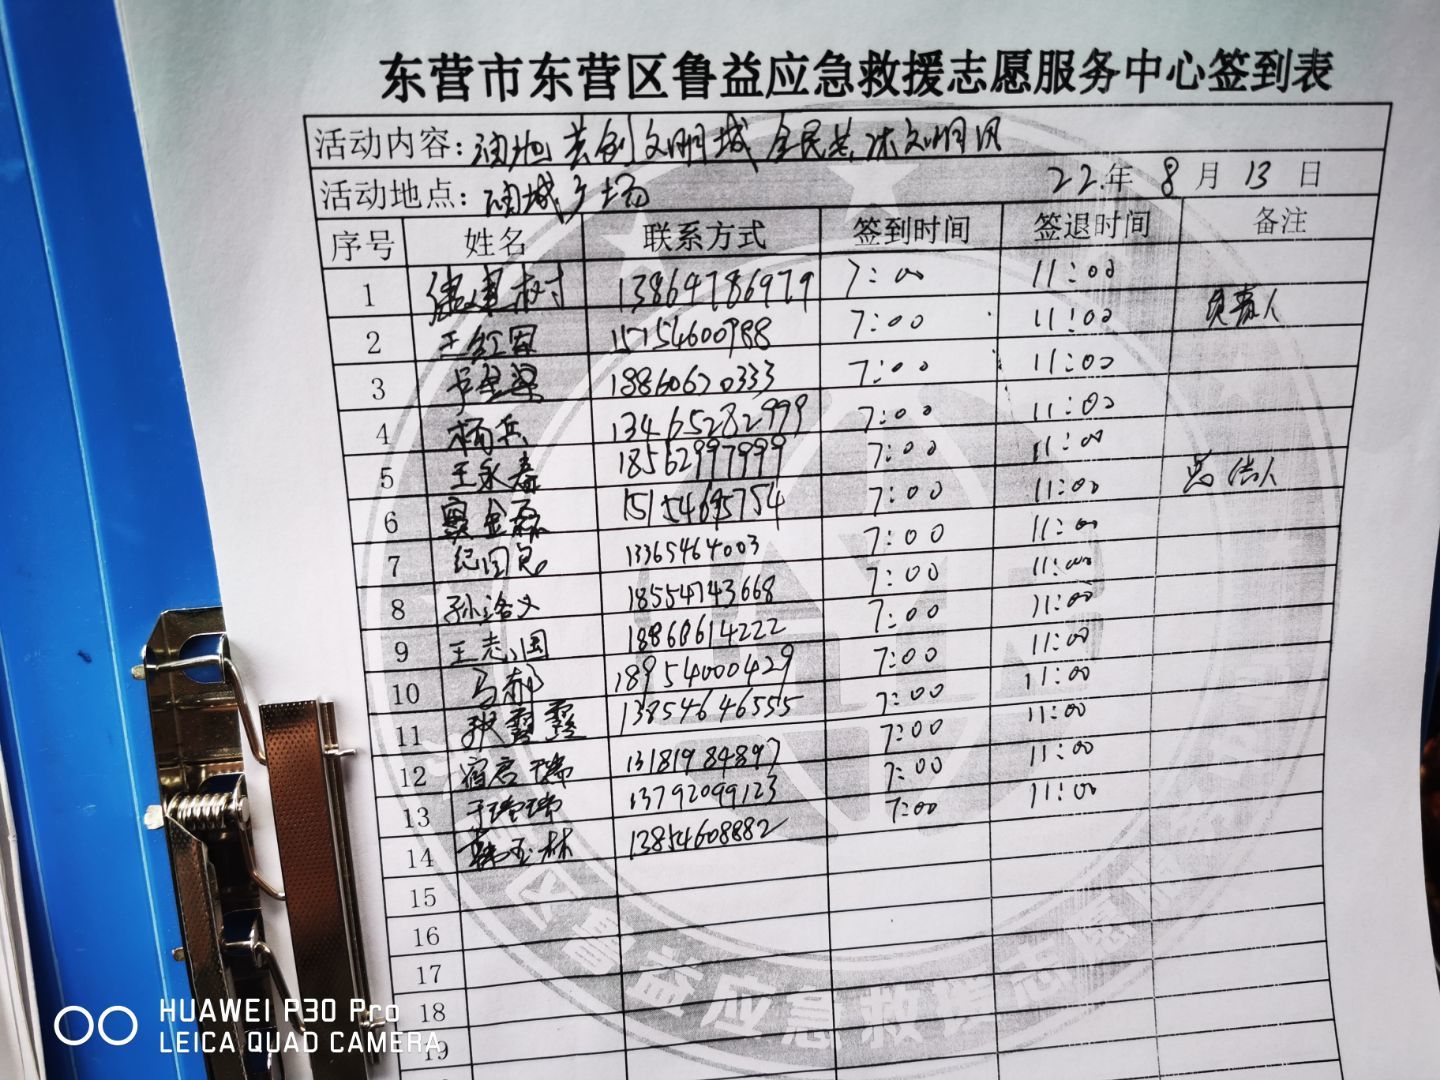 东营市东营区鲁益应急救援志愿服务中心签到表
活动内容: 共创文明城 全民共 文明
22年 8月 13日
活动地点: 城广场
序号 姓名 联系方式 签到时间 签退时间 备注
1 树 13864786979 7:00 11:00
2 王红 15154600988 7:00 11:00 负责人
3 18860620333 7:00 11:00
4 杨兵 13465282979 7:00 11:00
5 王永春 18562997999 7:00 11:00
6 窦金 15154695754 7:00 11:00 总结人
7 纪国 13365464003 7:00 11:00
8 孙治义 18554743668 7:00 11:00
9 王志国 18860614222 7:00 11:00
10 马郝 18954000429 7:00 11:00
11 张 13854646555 7:00 11:00
12 宿君瑞 13181984897 7:00 11:00
13 瑞 13792099123 7:00 11:00
14 韩玉林 13854608882 7:00 11:00
15
16
17
18
19
区鲁益应急救援志愿服
HUAWEI P30 Pro
LEICA QUAD CAMERA